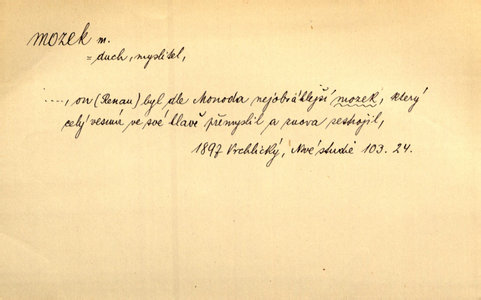 mozek m.
= duch, myslitel,
...., on (Renan) byl dle Monoda nejobrátilejší mozek, který
celý vesmír ve své hlavě přemyslil a znova sestrojil,
1897 Vrchlický, Nové studie 103. 24.